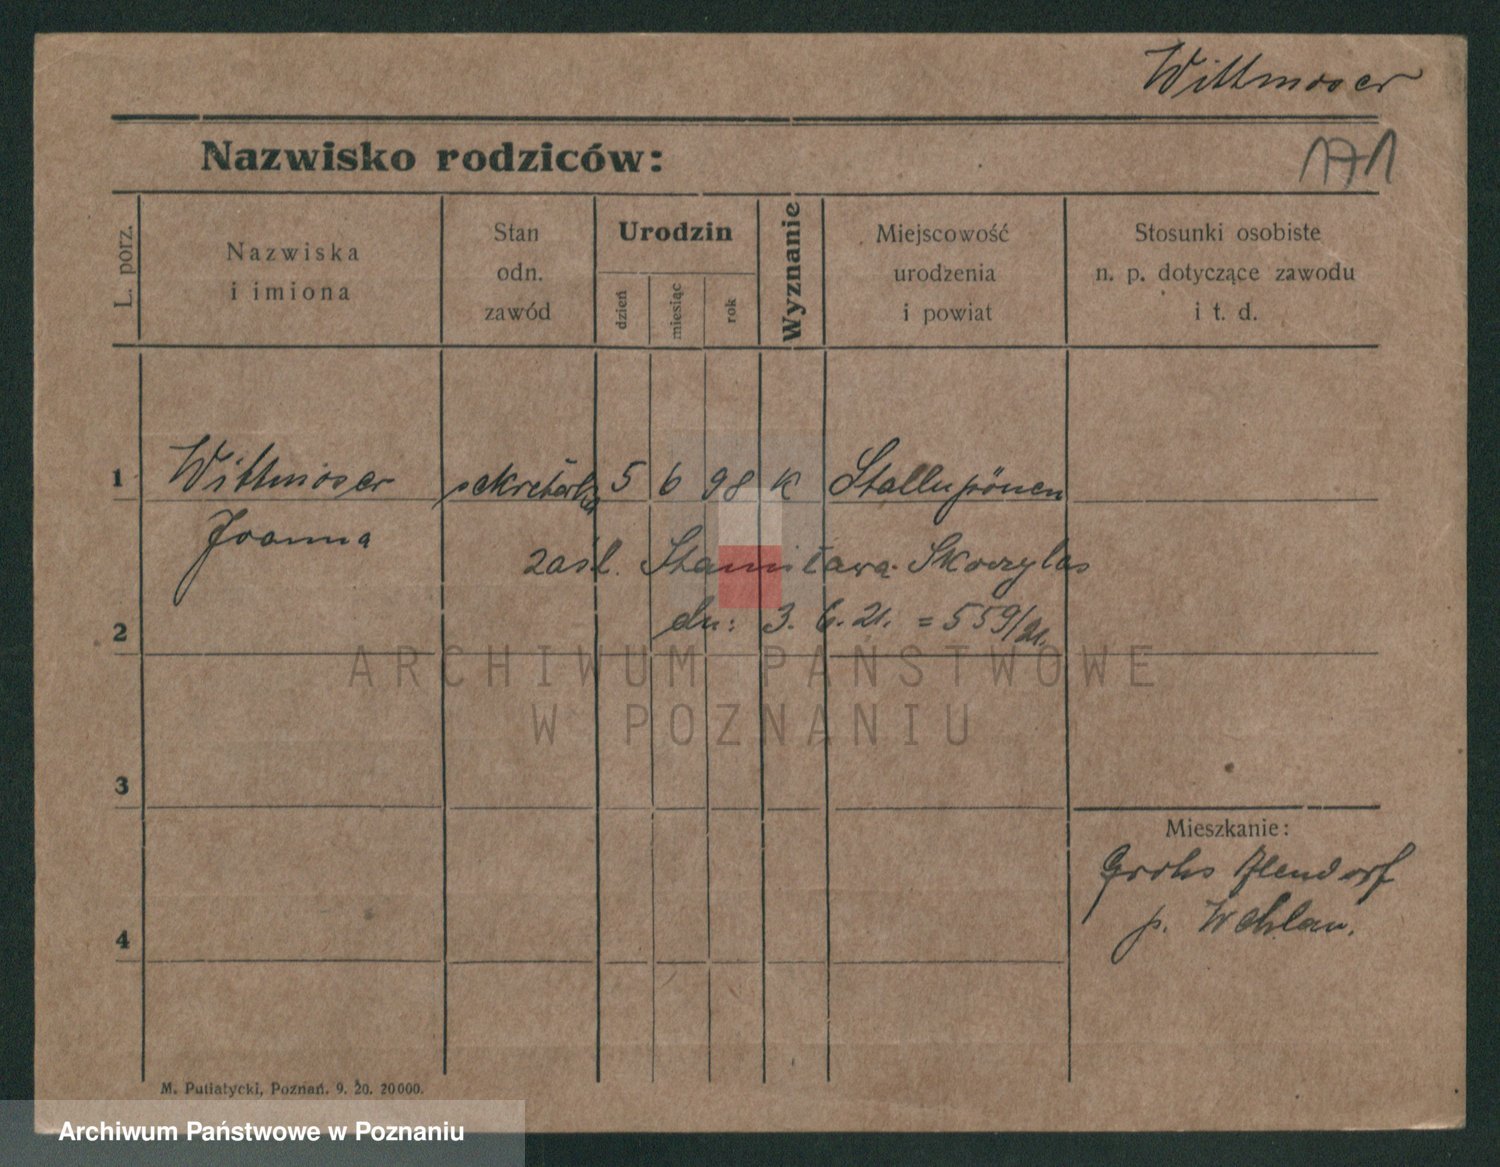 Wittmoser
171
Nazwisko rodziców:
L. porz.
Nazwiska
i imiona
Stan
odn.
zawód
Urodzin
dzień
miesiąc
rok
Wyznanie
Miejscowość
urodzenia
i powiat
Stosunki osobiste
n. p. dotyczące zawodu
i t. d.
1 Wittmoser sekretarka 5 6 98 K Stallupönen
Joanna
zaśl. Stanisława Skoczylas
2 dn: 3. 6. 21. = 559/21.
ARCHIWUM PAŃSTWOWE
W POZNANIU
3
Mieszkanie:
Grohs
p. Wehlau.
4
M. Putiatycki, Poznań. 9. 20. 20000.
Archiwum Państwowe w Poznaniu